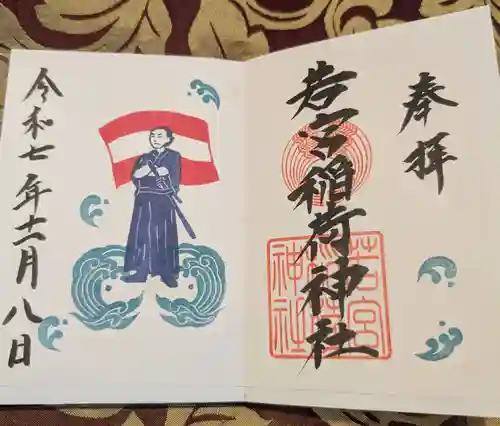 奉拝
若宮稲荷神社
若宮
神社
令和七年十一月八日